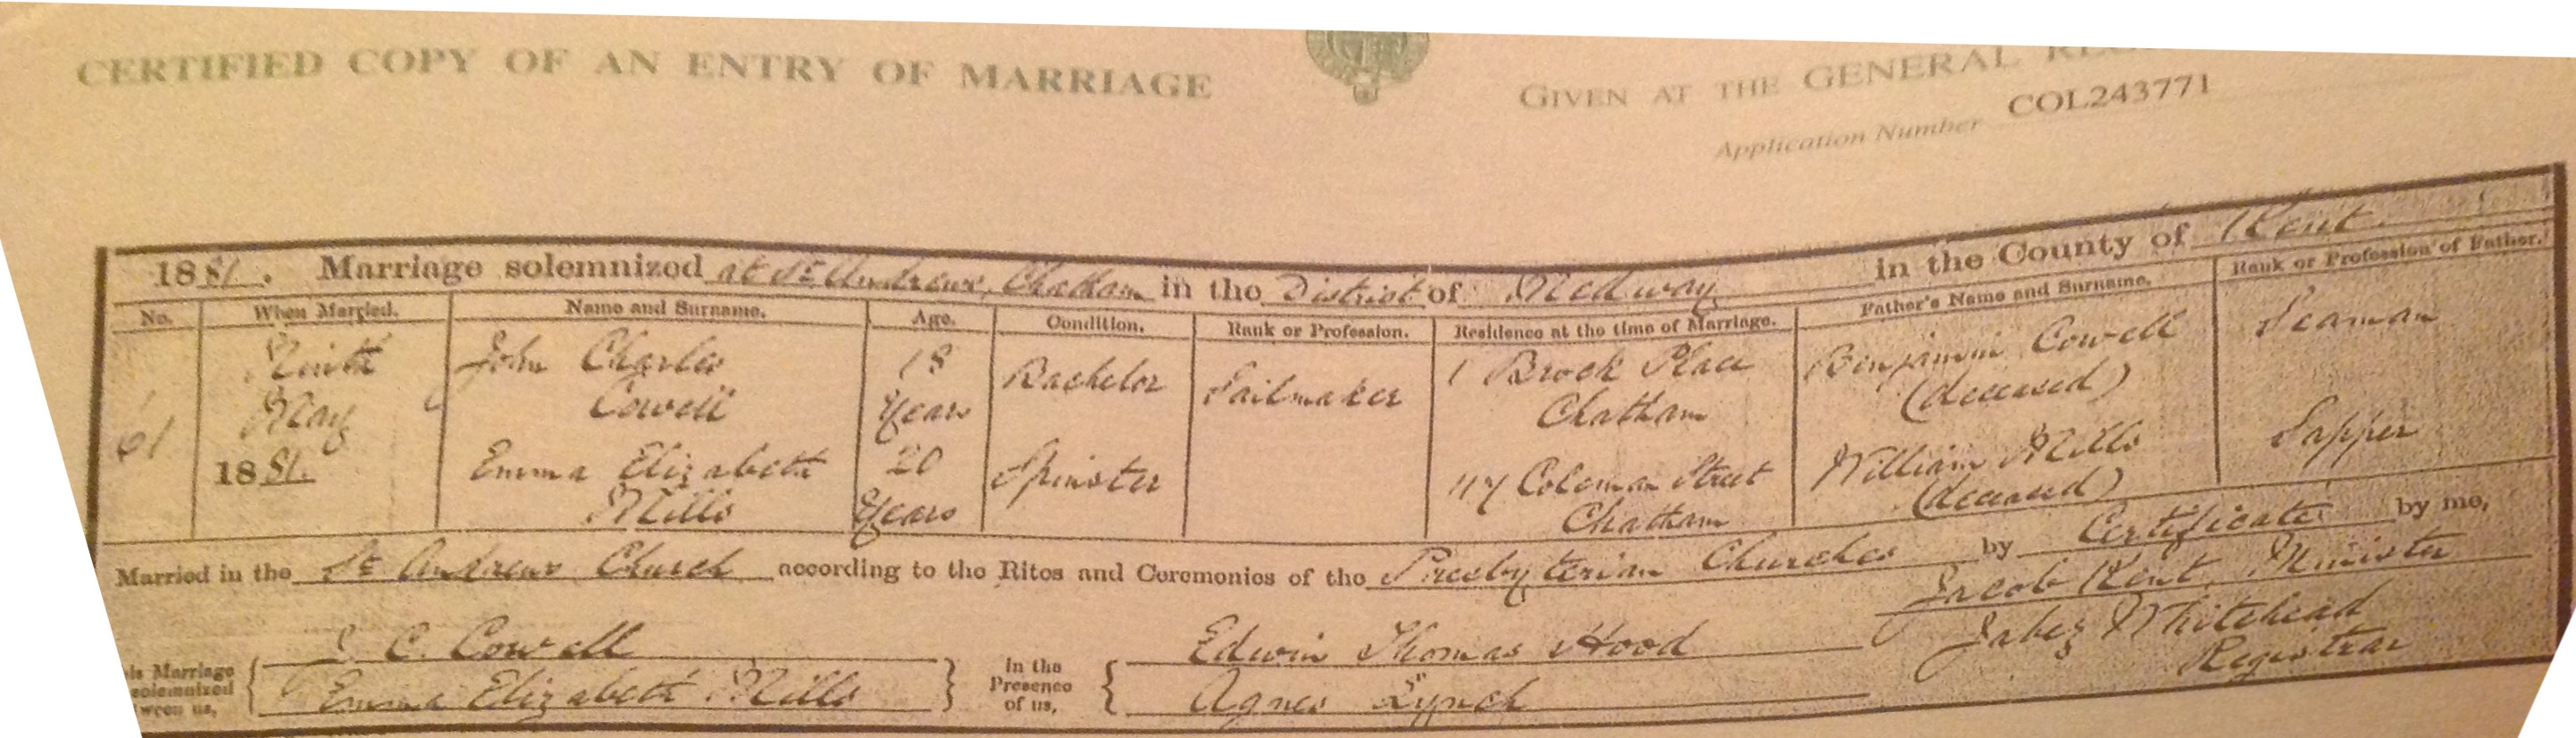 CERTIFIED COPY OF AN ENTRY OF MARRIAGE
GIVEN AT THE GENERAL
Application Number COL243771
1881. Marriage solemnized at St Andrews, Chatham in the District of Medway in the County of Kent.
No. When Married. Name and Surname. Age. Condition. Rank or Profession. Residence at the time of Marriage. Father's Name and Surname. Rank or Profession of Father.
61
Ninth
May
1881.
John Charles
Cowell
18
Years
Bachelor
Sailmaker
1 Brook Place
Chatham
Benjamin Cowell
(deceased)
Seaman
Emma Elizabeth
Mills
20
Years
Spinster
Coleman Street
Chatham
William Mills
(deceased)
Sapper
Married in the St Andrews Church according to the Rites and Ceremonies of the Presbyterian Churches by Certificate by me,
Jacob Kent, Minister
Jabez Whitehead
Registrar
Marriage
solemnized
us,
J C. Cowell
Emma Elizabeth Mills
in the
Presence
of us,
Edwin Thomas Hood
Agnes Lynch